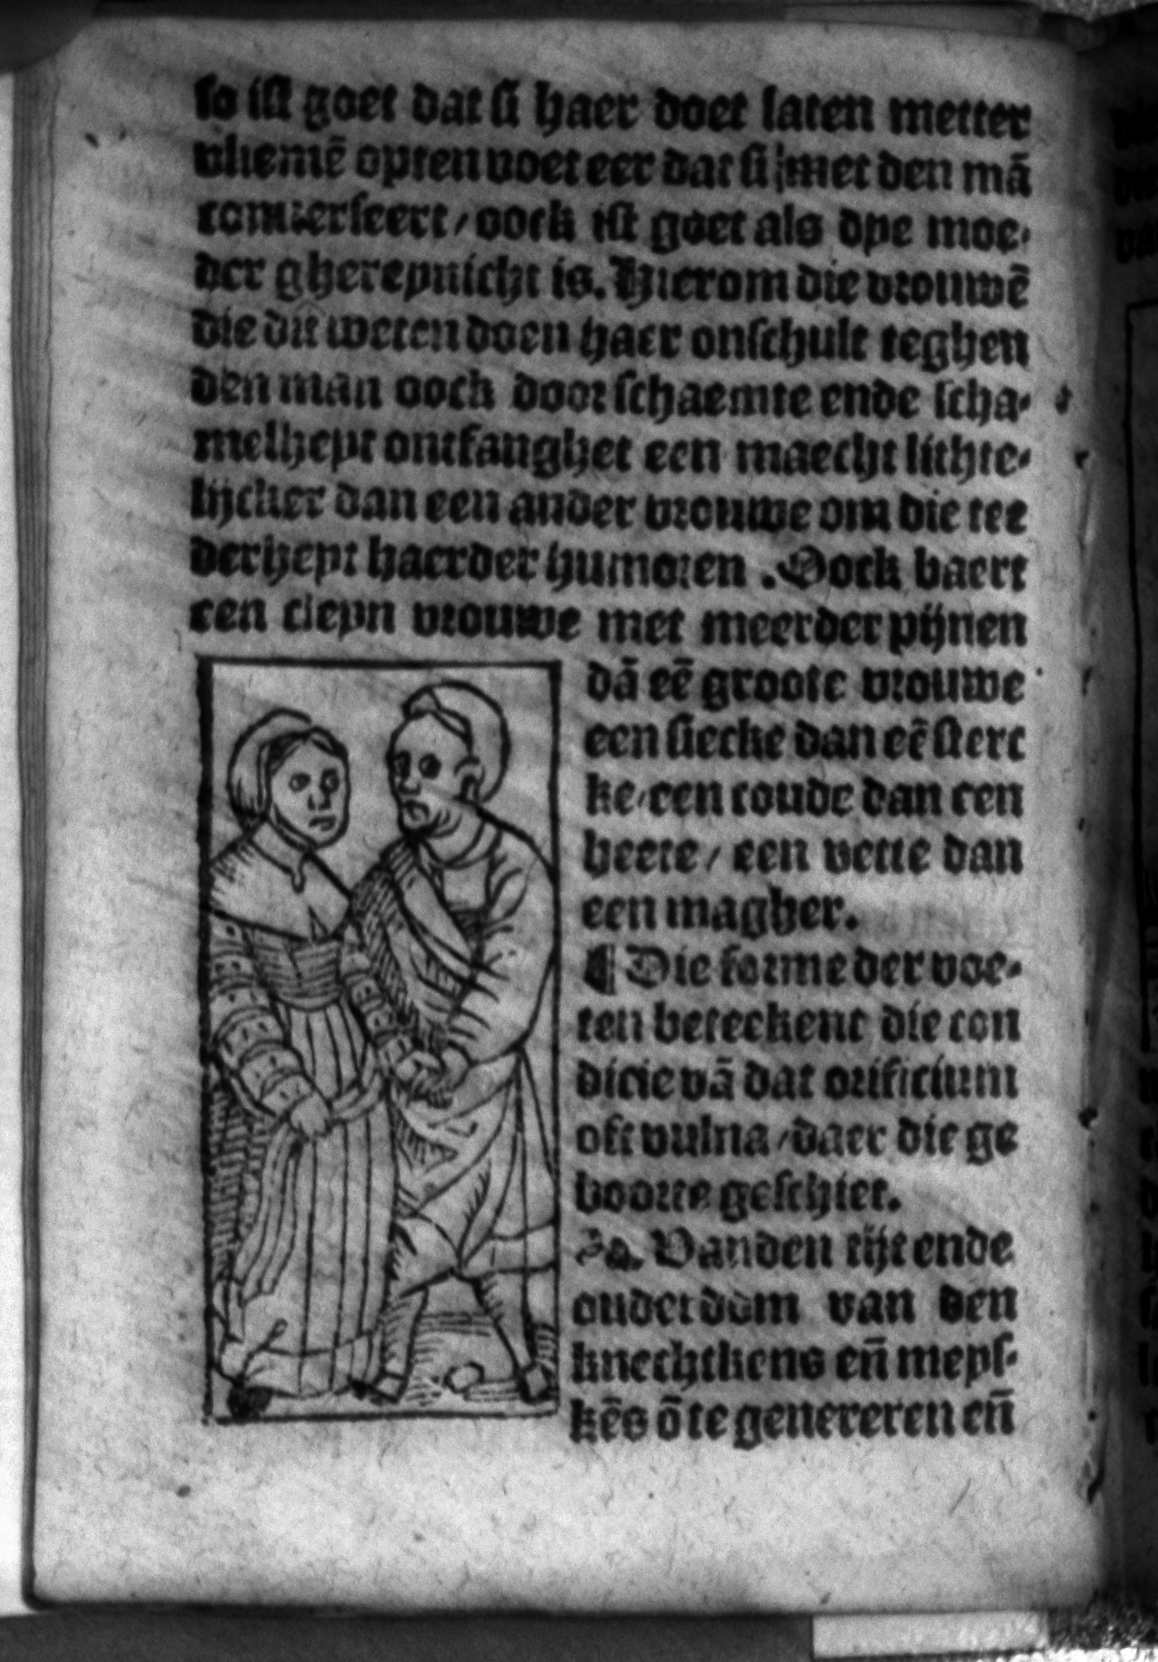 so ist goet dat si haer doet laten metter
vliemē opten voet eer dat si met den mā
converseert / oock ist goet als dye moe-
der ghereynicht is. Hierom die vrouwē
die dit weten doen haer onschult teghen
den man oock door schaemte ende scha-
melheyt ontfanghet een maecht lichte-
lijcker dan een ander vrouwe om die tee
derheyt haerder humoren . Oock baert
een cleyn vrouwe met meerder pijnen
dā eē groote vrouwe
een siecke dan eē sterc
ke/een coude dan een
heete / een vette dan
een magher.
¶ Die forme der voe-
ten beteekent die con
dicie vā dat orificium
oft vulna / daer die ge
boorte geschiet.
Vanden tijt ende
ouderdom van den
knechtkens eñ meys-
kēs ō te genereren eñ